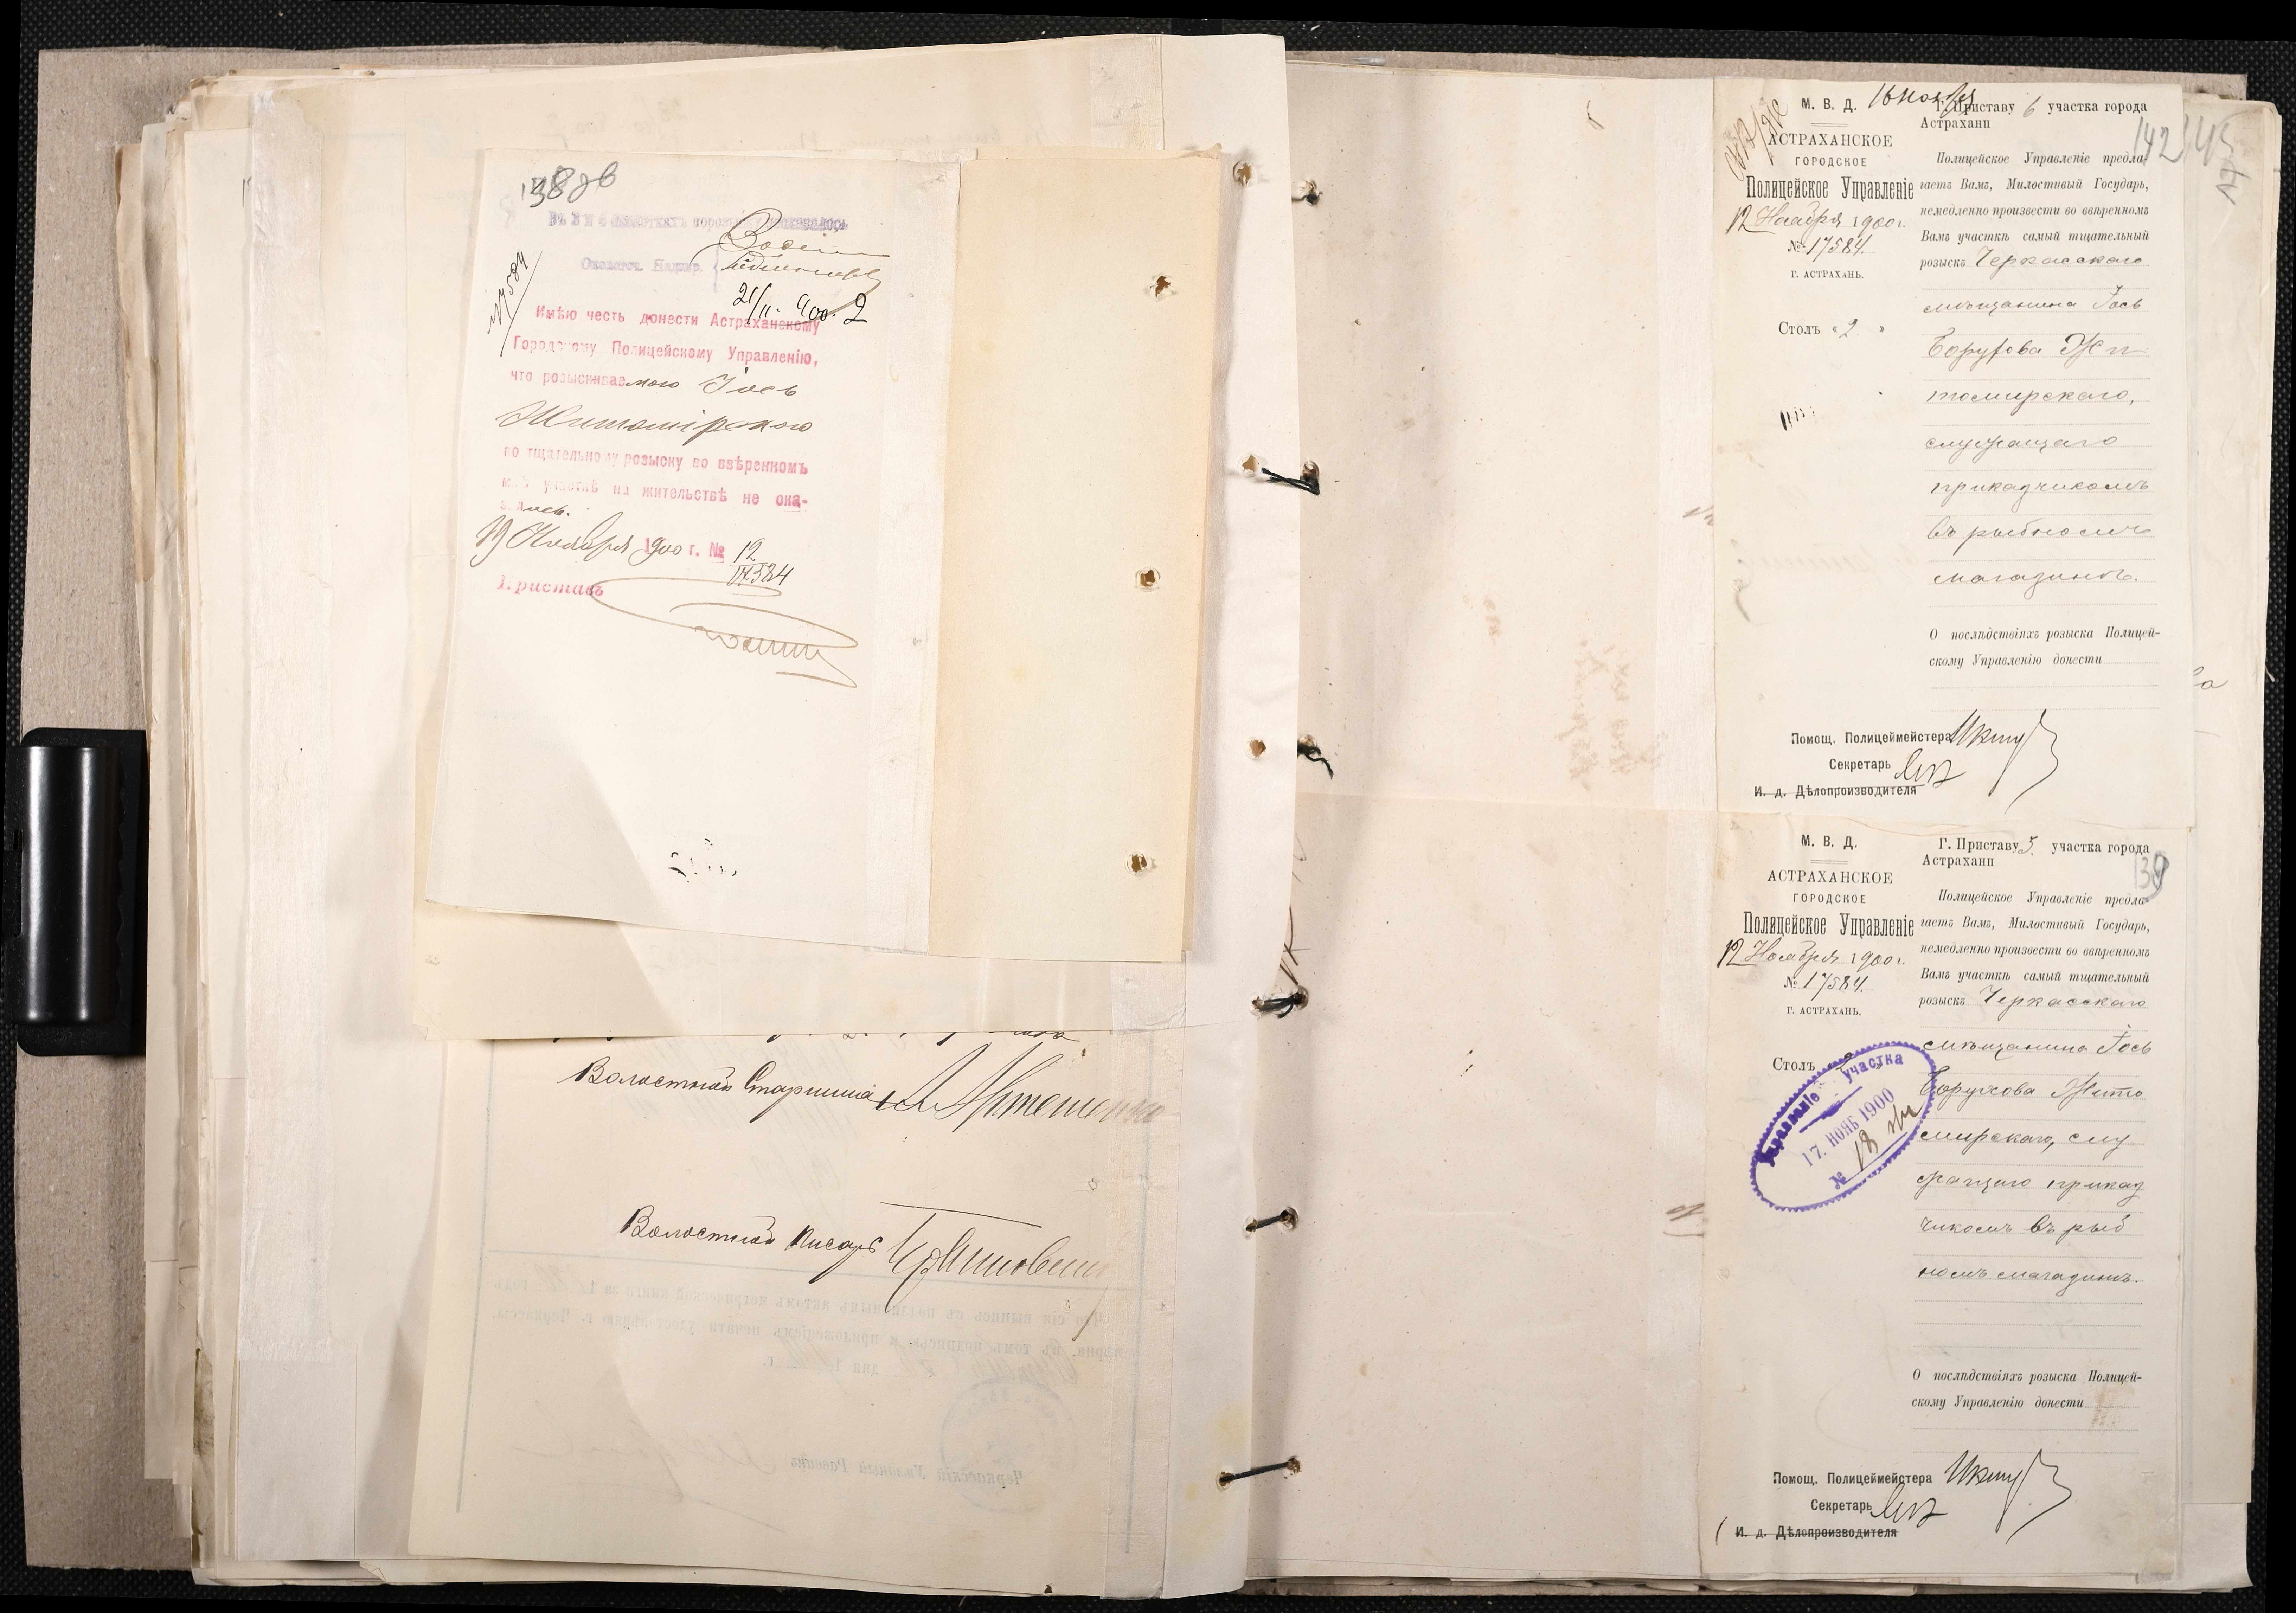 138 об
Въ 3 и 4 околоткахъ по розыску не оказалось
Околоточ. Надзир.
21/11 900. 2
№ 17584
Имѣю честь донести Астраханскому
Городскому Полицейскому Управленію,
что розыскиваемаго Іось
Житомірского
по тщательному розыску во ввѣренномъ
мнѣ участкѣ на жительствѣ не ока-
залось.
19 Ноября 1900 г. № 12
17584
Приставъ
Волостной Старшина
Волостной Писарь
Что сія выпись съ подлиннымъ актомъ метрической книги за 1 годъ
вѣрна, въ томъ подписью и приложеніемъ печати удостовѣряю г. Черкассы.
дня 1 г.
Черкасскій Уѣздный Раввинъ
142
М. В. Д.
16 Ноября
АСТРАХАНСКОЕ
ГОРОДСКОЕ
Полицейское Управленіе
12 Ноября 1900 г.
№ 17584.
Г. АСТРАХАНЬ.
Столъ „2“
Г. Приставу 6 участка города
Астрахани
Полицейское Управленіе предла-
гаетъ Вамъ, Милостивый Государь,
немедленно произвести во ввѣренномъ
Вамъ участкѣ самый тщательный
розыскъ Черкасскаго
мѣщанина Іось
Борухова Жи
томирскаго,
служащаго
прикащикомъ
въ рыбномъ
магазинѣ.
О послѣдствіяхъ розыска Полицей-
скому Управленію донести
Помощ. Полицеймейстера
Секретарь
И. д. Дѣлопроизводителя
139
М. В. Д.
АСТРАХАНСКОЕ
ГОРОДСКОЕ
Полицейское Управленіе
12 Ноября 1900 г.
№ 17584.
Г. АСТРАХАНЬ.
Столъ
Управленіе участка
17. НОЯБ 1900
№ 18
Г. Приставу 5 участка города
Астрахани
Полицейское Управленіе предла-
гаетъ Вамъ, Милостивый Государь,
немедленно произвести во ввѣренномъ
Вамъ участкѣ самый тщательный
розыскъ Черкасскаго
мѣщанина Іось
Борухова Жито
мирскаго, слу
жащаго прикащ
чикомъ въ рыб
номъ магазинѣ.
О послѣдствіяхъ розыска Полицей-
скому Управленію донести
Помощ. Полицеймейстера
Секретарь
И. д. Дѣлопроизводителя